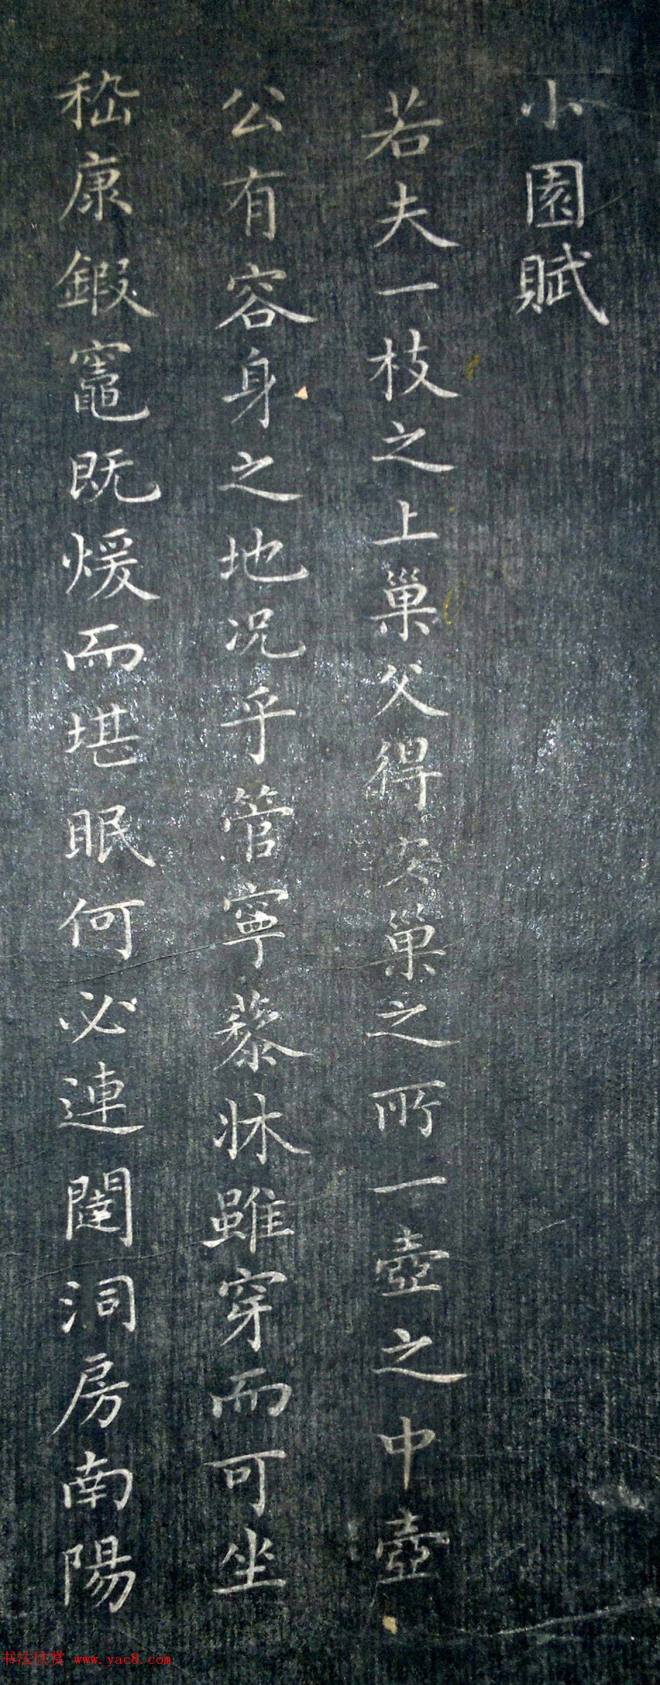 小園賦
若夫一枝之上巢父得安巢之所一壺之中壺
公有容身之地况乎管寧藜牀雖穿而可坐
嵇康鍛竈既煖而堪眠何必連闥洞房南陽
www.yac8.com